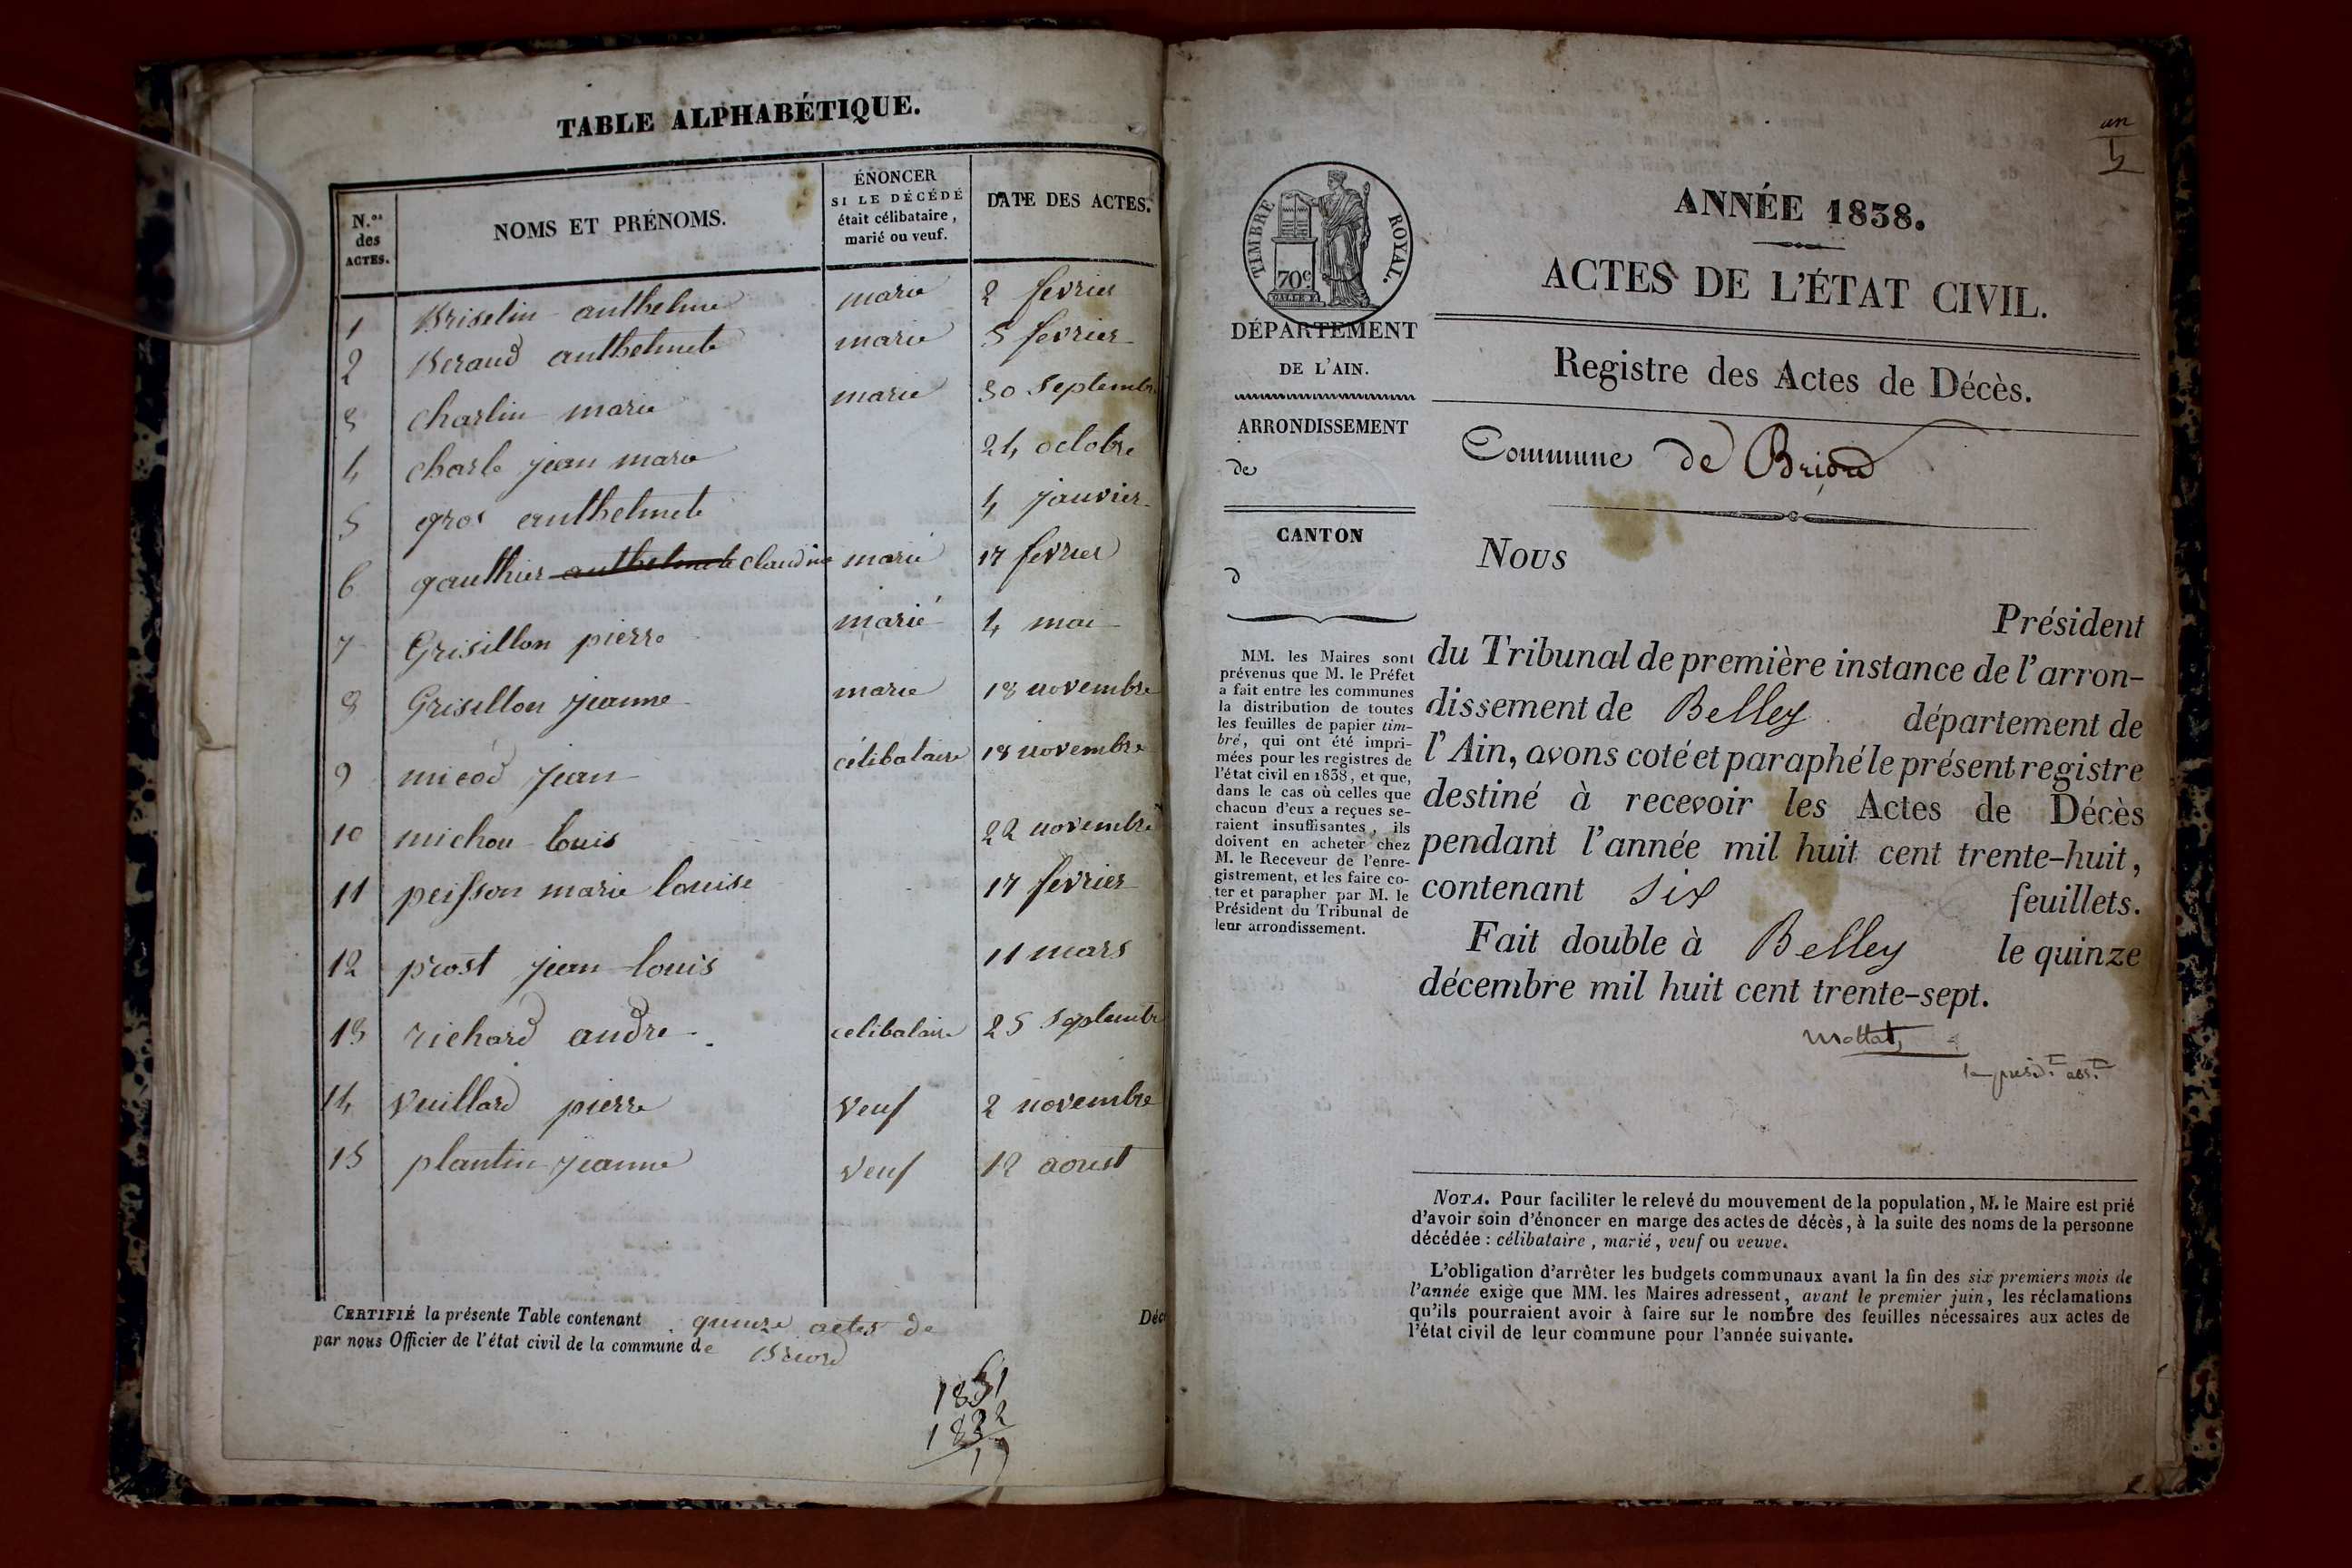 TABLE ALPHABÉTIQUE.
N.os des ACTES.
NOMS ET PRÉNOMS.
ÉNONCER
SI LE DÉCÉDÉ
était célibataire,
marié ou veuf.
DATE DES ACTES.
1 Briselin anthelme marie 2 fevrier
2 Beraud anthelmete marie 5 fevrier
3 charlin marie marie 30 Septembre
4 charle jean marie 24 octobre
5 gros anthelmete 4 janvier
6 gauthier anthelmete claudine marié 17 fevrier
7 Grisillon pierre marié 4 mai
8 Grisillon jeanne marie 18 novembre
9 micod jean célibataire 18 novembre
10 michou louis 22 novembre
11 peisson marie louise 17 fevrier
12 prost jean louis 11 mars
13 richard andre celibataire 25 Septembre
14 vuillard pierre veuf 2 novembre
15 plantin jeanne veuf 12 aoust
CERTIFIÉ la présente Table contenant quinze actes de Déc
par nous Officier de l'état civil de la commune de Briord
1831
1832
un
TIMBRE ROYAL.
70c
DÉPARTEMENT
DE L'AIN.
ARRONDISSEMENT
de
CANTON
d
MM. les Maires sont
prévenus que M. le Préfet
a fait entre les communes
la distribution de toutes
les feuilles de papier tim-
bré, qui ont été impri-
mées pour les registres de
l'état civil en 1838, et que,
dans le cas où celles que
chacun d'eux a reçues se-
raient insuffisantes, ils
doivent en acheter chez
M. le Receveur de l'enre-
gistrement, et les faire co-
ter et parapher par M. le
Président du Tribunal de
leur arrondissement.
ANNÉE 1838.
ACTES DE L'ÉTAT CIVIL.
Registre des Actes de Décès.
Commune de Briord
Nous
Président
du Tribunal de première instance de l'arron-
dissement de Belley département de
l'Ain, avons coté et paraphé le présent registre
destiné à recevoir les Actes de Décès
pendant l'année mil huit cent trente-huit,
contenant six feuillets.
Fait double à Belley le quinze
décembre mil huit cent trente-sept.
Mottat
NOTA. Pour faciliter le relevé du mouvement de la population, M. le Maire est prié
d'avoir soin d'énoncer en marge des actes de décès, à la suite des noms de la personne
décédée : célibataire, marié, veuf ou veuve.
L'obligation d'arrêter les budgets communaux avant la fin des six premiers mois de
l'année exige que MM. les Maires adressent, avant le premier juin, les réclamations
qu'ils pourraient avoir à faire sur le nombre des feuilles nécessaires aux actes de
l'état civil de leur commune pour l'année suivante.